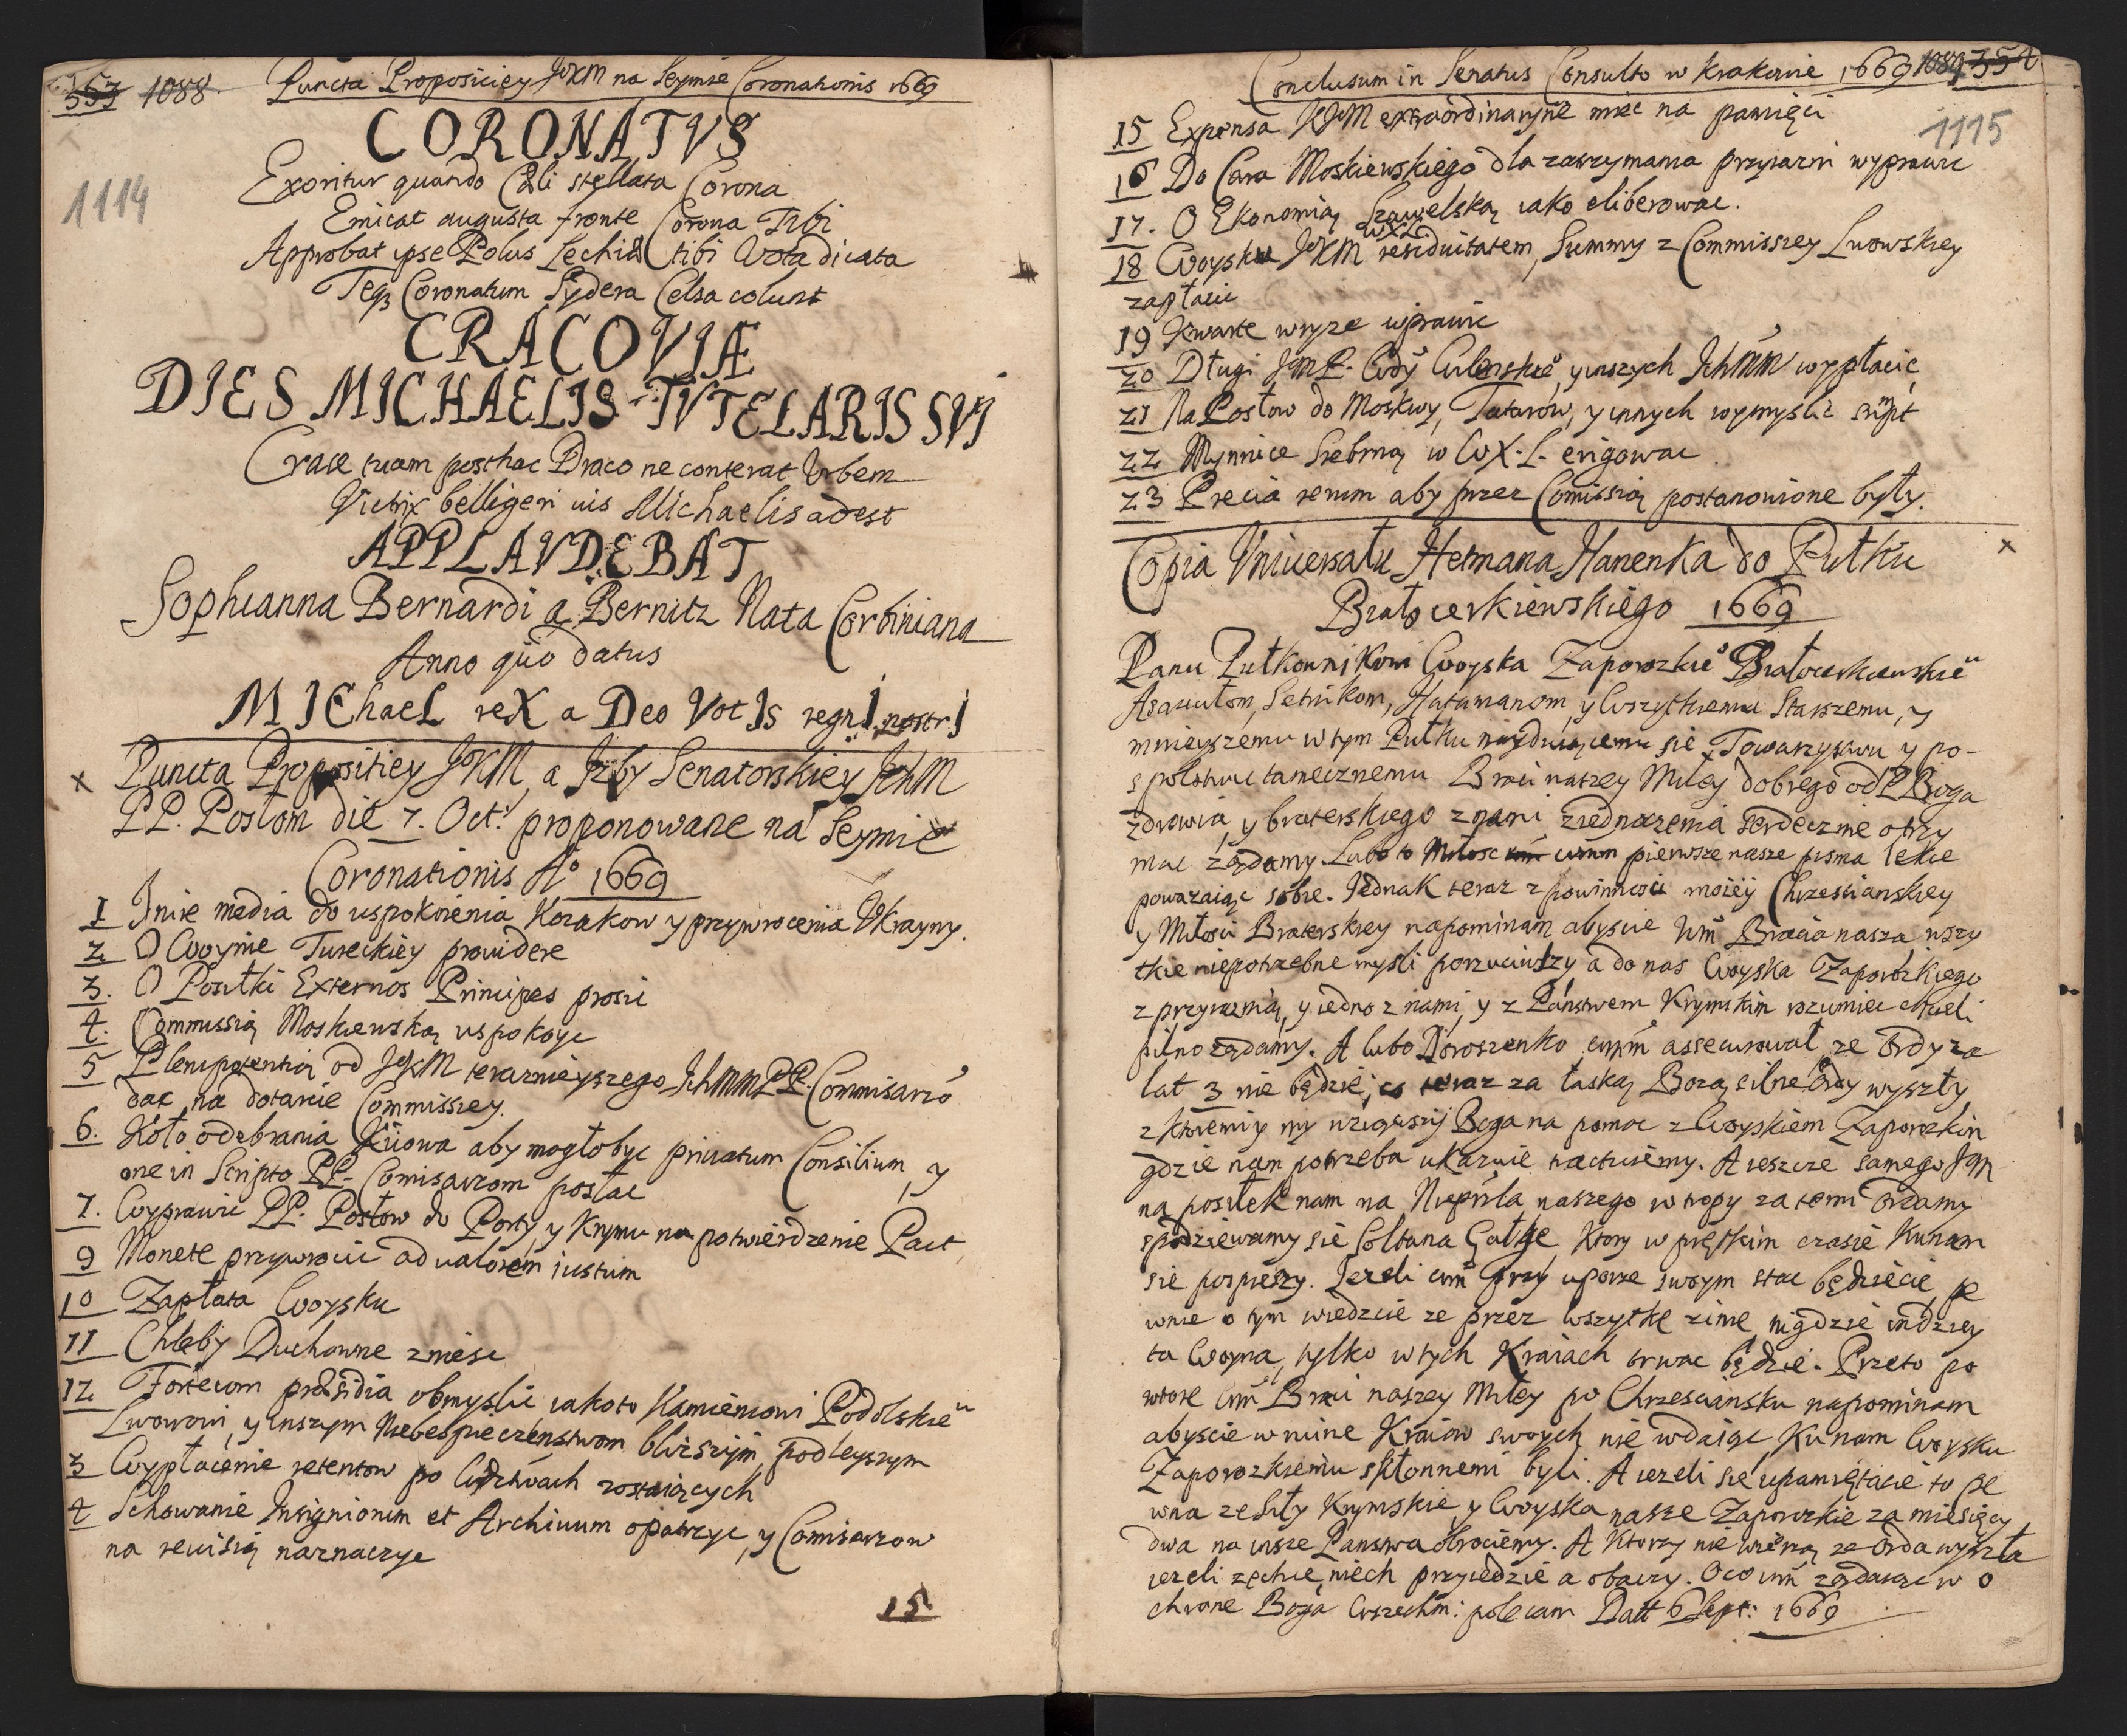 353 1088 Puncta Proposiciey JKM na Seymie Coronationis 1669
1114
CORONATVS
Exoritur quando Cæli stellata Corona
Emicat augusta fronte Corona Tibi
Approbat ipse Polus Lechiæ tibi Vota dicata
Teq3 Coronatum Sydera Celsa colunt
CRACOVIÆ
DIES MICHAELIS TVTELARIS SVI
Crace tuam posthac Draco ne conterat Vrbem
Victrix belligeri vis Michaelis adest
APPLAVDEBAT
Sophianna Bernardi a Bernitz Nata Corbiniana
Anno quo datus
MIChaeL reX a Deo Vot Is regnI nostrI
x Puncta Propositiey JKM, a Izby Senatorskiey JchM
PP. Posłom die 7. Oct: proponowane na Seymie
Coronationis Aº 1669
1 Inire media do uspokoienia Kozakow y przywrocenia Vkrayny.
2 O Woynie Tureckiey providere
3. O Posiłki Externos Principes prosic
4. Commissią Moskiewską uspokoyc
5 Plenipotentią od JKM teraznieyszego JchMM PP. Commisarzo
dac na dotarcie Commissiey.
6. Koło odebrania Kiiowa aby mogło byc privatum Consilium, y
one in Scripto PP. Comisarzom posłac
7. Wyprawic PP. Posłow do Porty, y Krymu na potwierdzenie Pact,
9 Monete przywrocic ad valorem iustum
10 Zapłata Woysku
11 Chleby Duchowne zniesc
12 Fortecom præsidia obmyslic iakoto Kamieniowi Podolskie
Lwowowi, y inszym Niebespieczenstwom bliższym, podleyszym
3 Wypłacenie retentow po Wdztwach zostaiących
4 Schowanie Insigniorum et Archivum opatrzyc, y Comisarzow
na rewisią naznaczyc
15
Conclusum in Senatus Consulto w Krakowie 1669 1089 354
1115
15 Expensa JKM extraordinaryine miec na pamięci
16 Do Cara Moskiewskiego dla zatrzymania przyiazni wyprawic
17. O Ekonomią Szawelską iako eliberowac.
WXL
18 Woysku JKM residuitatem, Summy z Commissiey Lwowskiey
zapłacic
19 Kwarte wryze wprawic
20 Długi JmP. Wdy Culenskiº, y inszych Jchmm wypłacic
21 Na Posłow do Moskwy, Tatarów, y innych wymyslic sumpt
22 Mynnice Srebrną w WX.L. erigowac
23 Precia rerum aby przez Comissią postanowione były.
Copia Vniuersału Hetmana Hanenka do Pułku x
Białocerkiewskiego 1669
Panu Pułkownikowi Woyska Zaporozkiº Białocerkiewskie
Asawułom, Setnikom, Hatamanom, y Wszytkiemu Starszemu, y
mnieyszemu w tym Pułku nayduiącemu się Towarzystwu y po-
spolstwu tamecznemu Braci naszey Miłey dobrego od P Boga
zdrowia, y braterskiego z nami ziednoczenia serdecznie otrzy
mac żądamy. Lubo to Miłosc pierwsze nasze pisma lekce
poważaiąc sobie. Jednak teraz z powinnosci moiey Chrzescianskiey
y Miłosci Braterskiey napominam abyscie Wm Bracia nasza wszy
tkie niepotrzebne mysli porzuciwszy a do nas Woyska Zaporozkiego
z przyiaznią, y iedno z nami, y z Państwem Krymskim rozumiec chcieli
pilno żądamy. A lubo Doroszenko assecurował ze Ordy za
lat 3 nie będzie, co teraz za łaską Bozą silne Ordy wyszły
z ktoremi y my wziąwszy Boga na pomoc z Woyskiem Zaporozkim
gdzie nam potrzeba ukazuie A ieszcze samego
na posiłek nam na Nieprzla naszego w tropy za temi Ordamy
spodziewamy się Sołtana Gałge, Ktory w prętkim czasie Ku nam
się pospieszy. Iezeli wm przy uporze swoym stac będziecie, pe
wnie o tym wiedzcie ze przez wszytkę zimę nigdzie indziey
ta Woyna, tylko w tych Kraiach trwac będzie. Przeto po
wtore Wm Braci naszey Miłey po Chrzesciansku napominam
abyscie w ruine Kraiow swoych nie wdaiąc, Ku nam Woysku
Zaporozkiemu skłonnemi byli. A iezeli się upamiętacie to pe
wna ze Siły Krymskie, y Woyska nasze Zaporozkie za miesięcy
dwa na insze Panstwa obrociemy. A Ktorzy nie wierzą ze Orda wyszła
iezeli zechcie, niech przyiedzie a obaczy. O co wm żądaiąc w o
chrone Boga Wszechm: polecam Datt 6 Sept: 1669